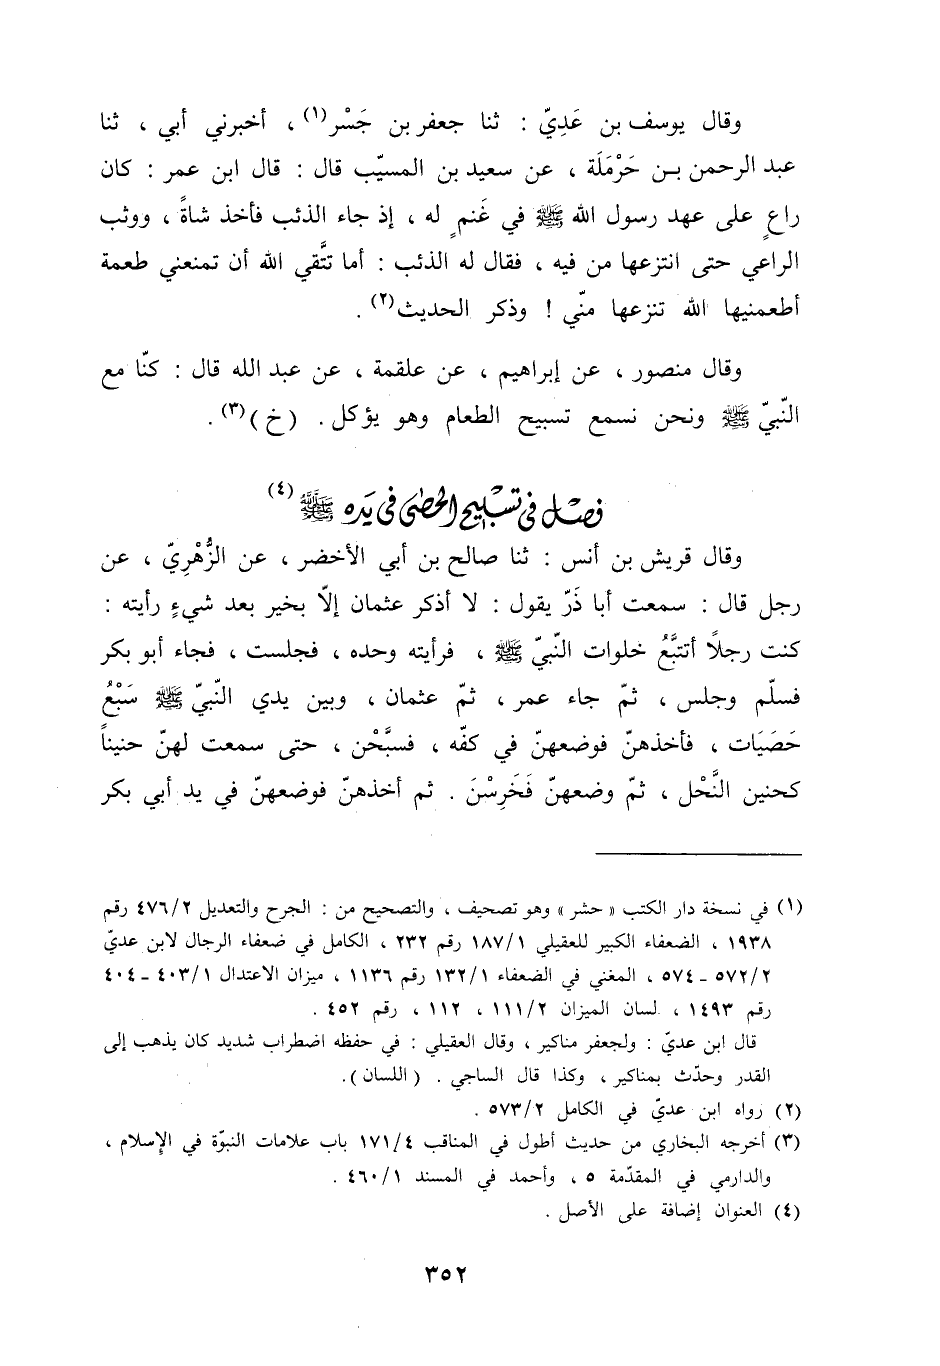 وقال يوسف بن عَدِيّ : ثنا جعفر بن جَسْر(١) ، أخبرني أبي ، ثنا
عبد الرحمن بـن حَرْمَلَة ، عن سعيد بن المسيّب قال : قال ابن عمر : كان
راعٍ على عهد رسول الله ﷺ في غَنمٍ له ، إذ جاء الذئب فأخذ شاةً ، ووثب
الراعي حتى انتزعها من فيه ، فقال له الذئب : أما تتَّقي الله أن تمنعني طعمة
أطعمنيها الله تنزعها منّي ! وذكر الحديث(٢) .
وقال منصور ، عن إبراهيم ، عن علقمة ، عن عبد الله قال : كنّا مع
النّبيّ ﷺ ونحن نسمع تسبيح الطعام وهو يؤكل . (خ)(٣) .
فصل في تسبيح الحصى في يده ﷺ (٤)
وقال قريش بن أنس : ثنا صالح بن أبي الأخضر ، عن الزُّهْريّ ، عن
رجل قال : سمعت أبا ذَرّ يقول : لا أذكر عثمان إلاّ بخير بعد شيءٍ رأيته :
كنت رجلاً أتتبَّعُ خلوات النّبيّ ﷺ ، فرأيته وحده ، فجلست ، فجاء أبو بكر
فسلّم وجلس ، ثمّ جاء عمر ، ثمّ عثمان ، وبين يدي النّبيّ ﷺ سَبْعُ
حَصَيَات ، فأخذهنّ فوضعهنّ في كفّه ، فسبَّحْن ، حتى سمعت لهنّ حنيناً
كحنين النَّحْل ، ثمّ وضعهنّ فَخَرِسْنَ . ثم أخذهنّ فوضعهنّ في يد أبي بكر
(١) في نسخة دار الكتب «حشر» وهو تصحيف ، والتصحيح من : الجرح والتعديل ٤٧٦/٢ رقم
١٩٣٨ ، الضعفاء الكبير للعقيلي ١٨٧/١ رقم ٢٣٢ ، الكامل في ضعفاء الرجال لابن عديّ
٥٧٢/٢ ـ ٥٧٤ ، المغني في الضعفاء ١٣٢/١ رقم ١١٣٦ ، ميزان الاعتدال ٤٠٣/١ ـ ٤٠٤
رقم ١٤٩٣ ، لسان الميزان ١١١/٢ ، ١١٢ ، رقم ٤٥٢ .
قال ابن عديّ : ولجعفر مناكير ، وقال العقيلي : في حفظه اضطراب شديد كان يذهب إلى
القدر وحدّث بمناكير ، وكذا قال الساجي . (اللسان).
(٢) رواه ابن عديّ في الكامل ٥٧٣/٢ .
(٣) أخرجه البخاري من حديث أطول في المناقب ١٧١/٤ باب علامات النبوّة في الإسلام ،
والدارمي في المقدّمة ٥ ، وأحمد في المسند ٤٦٠/١ .
(٤) العنوان إضافة على الأصل .
٣٥٢